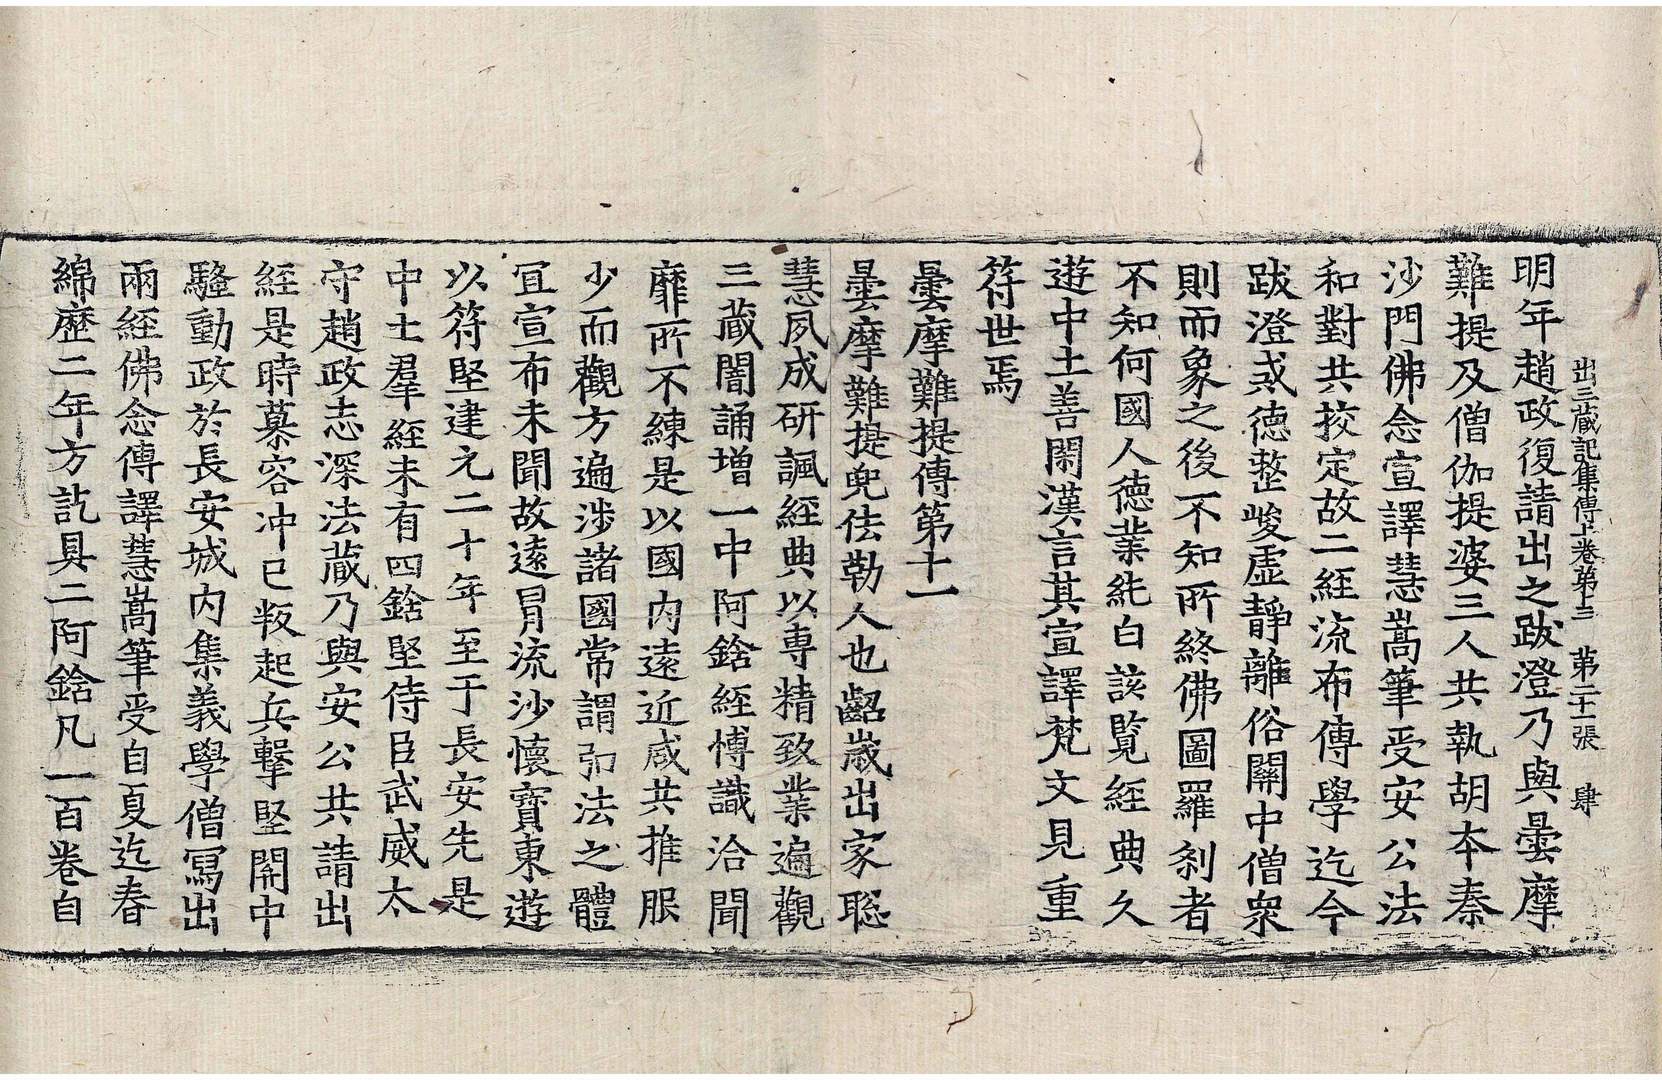 出三藏記集傳上卷第十三 第二十一張 肆
明年趙政復請出之跋澄乃與曇摩
難提及僧伽提婆三人共執胡夲秦
沙門佛念宣譯慧嵩筆受安公法
和對共挍定故二經流布傳學迄今
跋澄戒德整峻虛靜離俗關中僧衆
則而象之後不知所終佛圖羅刹者
不知何國人德業純白該覧經典久
遊中土善閑漢言其宣譯梵文見重
符世焉
曇摩難提傳第十一
曇摩難提兜佉勒人也齠歳出家聡
慧夙成研諷經典以專精致業遍觀
三藏闇誦增一中阿鋡經博識洽聞
靡所不練是以國內遠近咸共推服
少而觀方遍涉諸國常謂弘法之體
冝宣布未聞故遠冐流沙懷寳東遊
以符堅建元二十年至于長安先是
中土羣經未有四鋡堅侍臣武威太
守趙政志深法藏乃與安公共請出
經是時慕容冲已叛起兵擊堅關中
騷動政於長安城內集義學僧冩出
兩經佛念傳譯慧嵩筆受自夏迄春
綿歷二年方訖具二阿鋡凡一百卷自